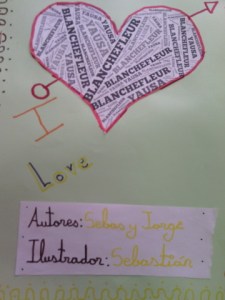 YAUSA
BLANCHEFLEUR
YAUSA
BLANCHEFLEUR
BLANCHEFLEUR
BLANCHEFLEUR
BLANCHEFLEUR
YAUSA
I
Love
Autores: Sebas y Jorge
Ilustrador: Sebastián